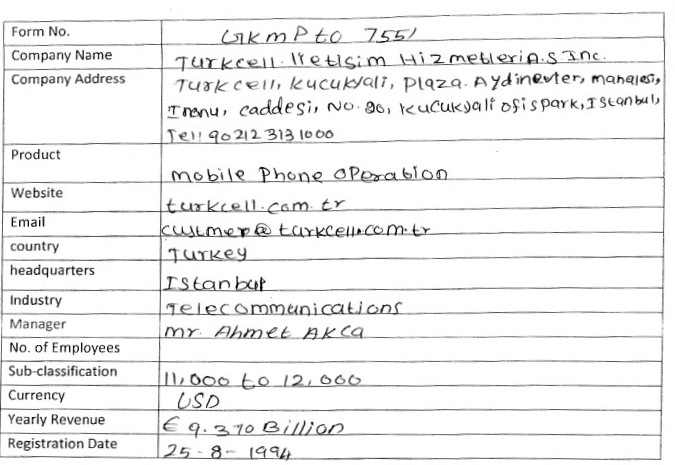 Form No. GKmPto 7551
Company Name Turkcell. Iletisim Hizmetleri A.S Inc.
Company Address Turkcell, Kucukyali, Plaza. Aydinevler, mahalesi,
Inonu, caddesi, No. 20, Kucukyali ofispark, Istanbul,
Tel: 90212 313 1000
Product
mobile Phone Operation
Website
turkcell.com.tr
Email custmer@turkcell.com.tr
country Turkey
headquarters
Istanbul
Industry Telecommunications
Manager mr. Ahmet Akca
No. of Employees
Sub-classification 11,000 to 12,000
Currency USD
Yearly Revenue € 9.370 Billion
Registration Date 25-8-1994